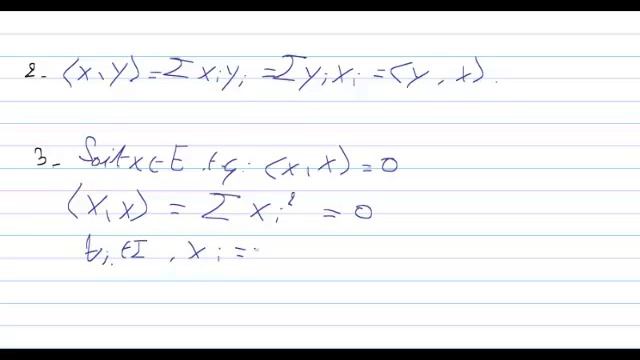 2- ⟨x, y⟩ = Σ xᵢyᵢ = Σ yᵢxᵢ = ⟨y, x⟩.
3- Soit x ∈ E t.q. ⟨x, x⟩ = 0
⟨x, x⟩ = Σ xᵢ² = 0
∀i ∈ I, xᵢ =